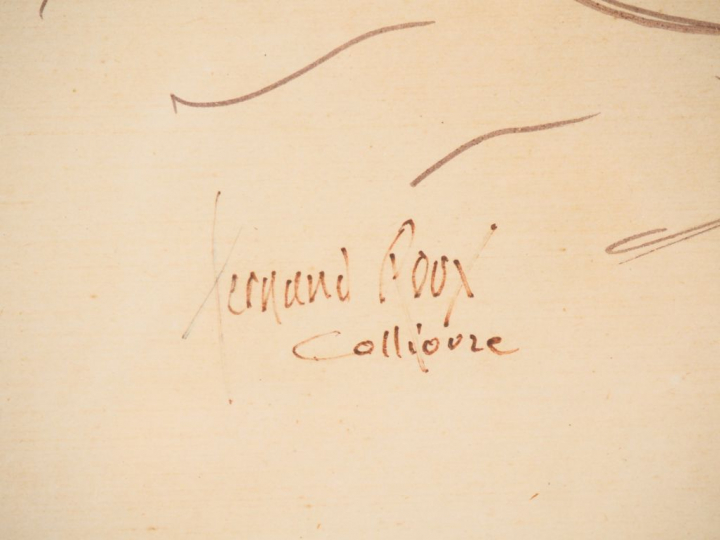 Fernand Roux
Collioure